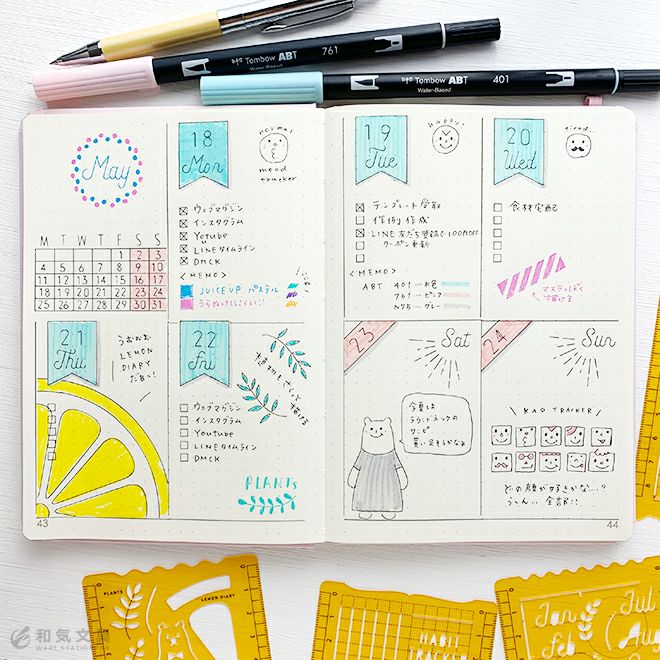 Tombow ABT
Water-Based
761
Tombow ABT
Water-Based
401
May
M T W T F S S
1 2 3
4 5 6 7 8 9 10
11 12 13 14 15 16 17
18 19 20 21 22 23 24
25 26 27 28 29 30 31
18
Mon
normal
mood
tracker
ウェブマガジン
インスタグラム
Yotube
LINEタイムライン
DMCK
<MEMO>
JUICE UP パステル
うらぬけしにくい!!
21
Thu
LEMON
DIARY
だぁ〜!
22
Fri
植物もきれいに描ける
ウェブマガジン
インスタグラム
Youtube
LINEタイムライン
DMCK
PLANTS
43
19
Tue
happy!
テンプレート受取
作例作成
LINE友だち登録で100円OFF
クーポン更新
<MEMO>
ABT 401...水色
761...ピンク
N75...グレー
20
Wed
tired..
食材宅配
マステっぽく
描ける
23
Sat
今夏は
ラウンドネックの
ワンピ
買い足そうかなぁ
24
Sun
KAO TRACKER
どの顔が好きかな...?
う〜ん... 全部!!
44
PLANTS
LEMON DIARY
HABIT
TRACKER
Jan Jul
Feb Aug
和気文具
WAKI STATIONERY